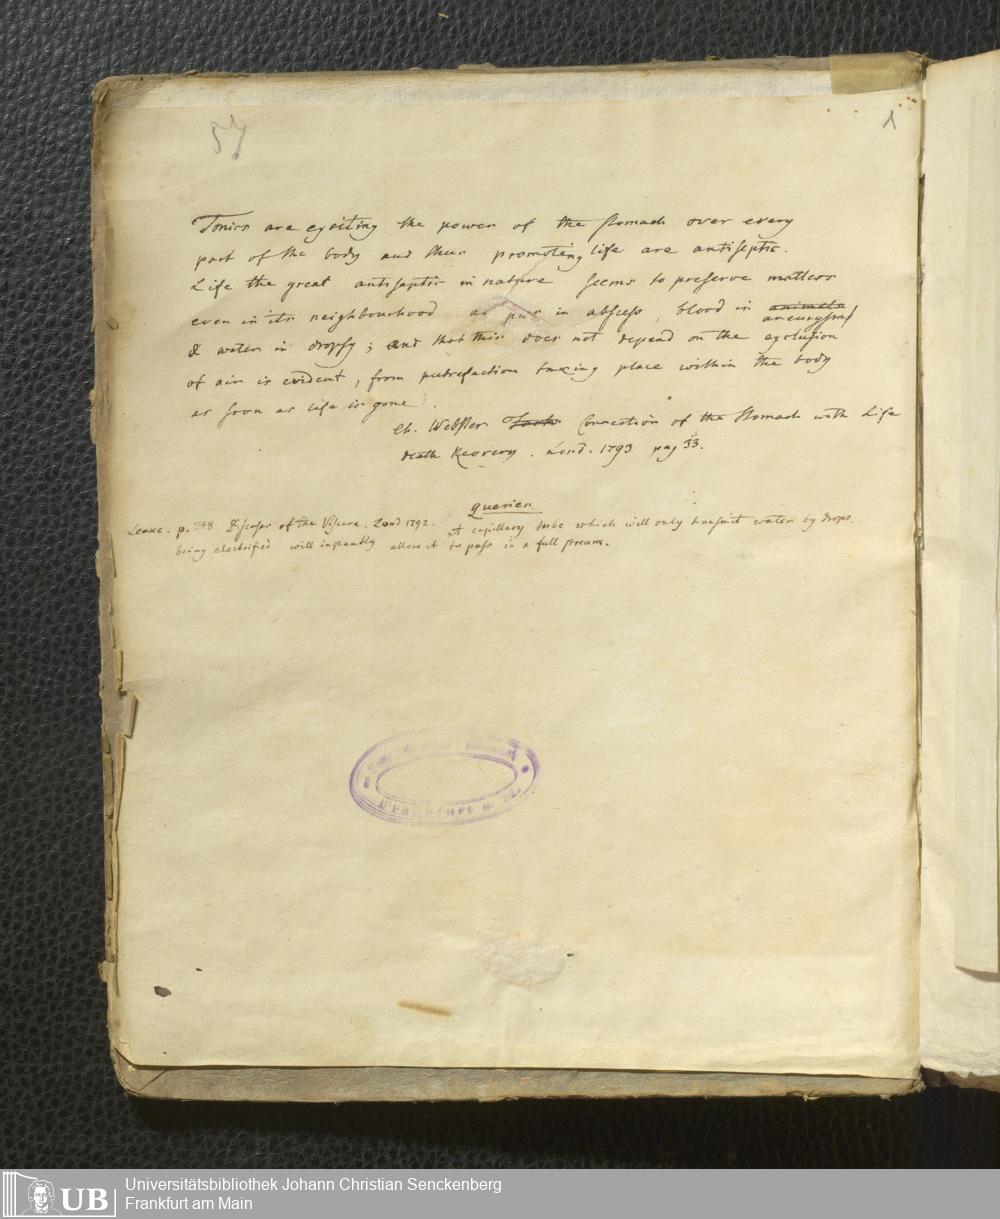 57
1
Tonics are exciting the power of the stomach over every
part of the body and thus promoting life are antiseptic.
Life the great antiseptic in nature seems to preserve matters
even in its neighbourhood as pus in abscess, blood in animals
aneurysms
& water in dropsy; and that this does not depend on the exclusion
of air is evident, from putrefaction taking place within the body
as soon as life is gone.
Ch. Webster Facts Connection of the Stomach with Life
death Recovery. Lond. 1793 pag 33.
Queries.
Leake. p. 248 Diseases of the Viscera. Lond 1792. A capillary tube which will only transmit water by drops.
being electrified will instantly allow it to pass in a full stream.
UB
Universitätsbibliothek Johann Christian Senckenberg
Frankfurt am Main